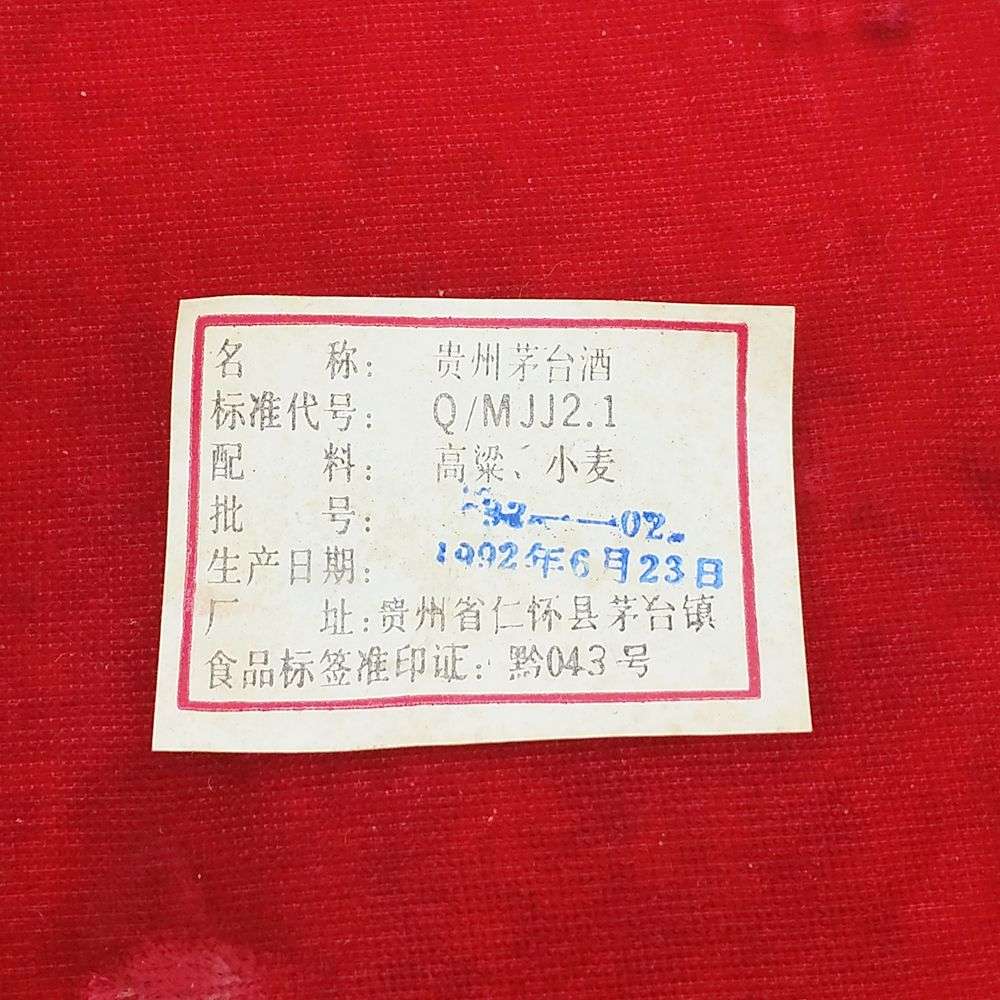 名 称： 贵州茅台酒
标准代号： Q/MJJ2.1
配 料： 高粱、小麦
批 号： 92——02
生产日期： 1992年6月23日
厂 址：贵州省仁怀县茅台镇
食品标签准印证：黔043号